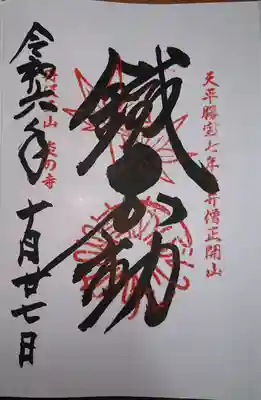 天平勝宝七年良弁僧正開山
鐵不動
山 の寺
令和六年十月廿七日